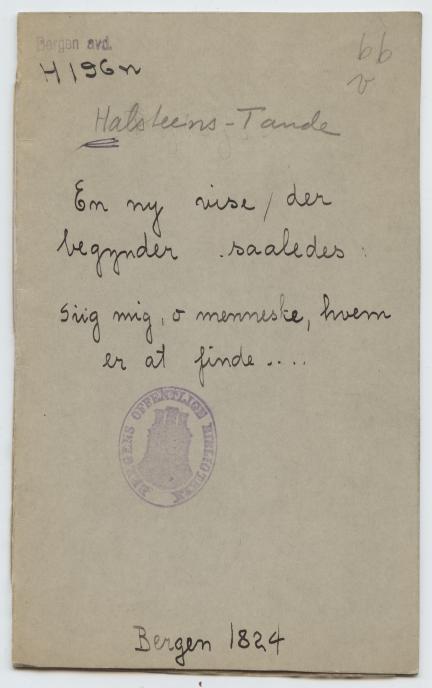 Bergen avd.
H196n
bb
v
Halsteens-Tande
En ny vise / der
begynder saaledes:
Siig mig, o menneske, hvem
er at finde....
BERGENS OFFENTLIGE BIBLIOTHEK
Bergen 1824